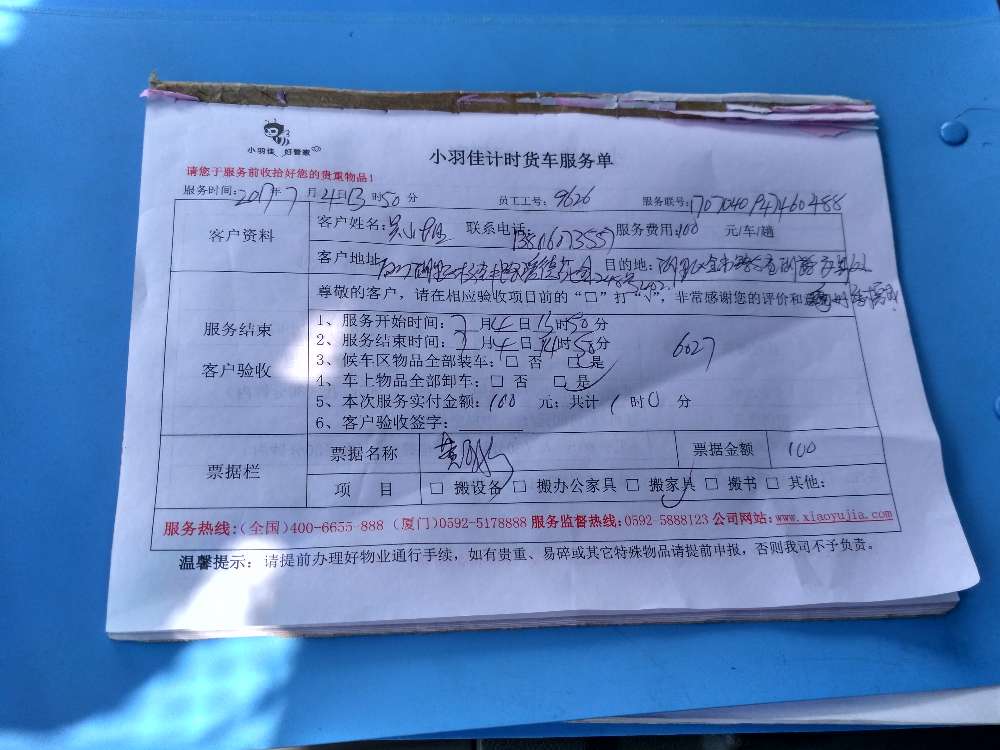 小羽佳 好管家
小羽佳计时货车服务单
请您于服务前收拾好您的贵重物品!
服务时间:2017年7月4日13时50分 员工工号:9626 服务联号:
客户资料 客户姓名: 联系电话: 服务费用:100 元/车/趟
客户地址: 目的地:
尊敬的客户,请在相应验收项目前的“□”打“√”,非常感谢您的评价和
服务结束
客户验收
1、服务开始时间:7月4日13时50分
2、服务结束时间:7月4日14时50分
6027
3、候车区物品全部装车:□ 否 □ 是
4、车上物品全部卸车:□ 否 □ 是
5、本次服务实付金额:100 元;共计 1 时 0 分
6、客户验收签字:
票据栏 票据名称 票据金额 100
项 目 □ 搬设备 □ 搬办公家具 □ 搬家具 □ 搬书 □ 其他:
服务热线:(全国)400-6655-888 (厦门)0592-5178888 服务监督热线:0592-5888123 公司网站:www.xiaoyujia.com
温馨提示:请提前办理好物业通行手续,如有贵重、易碎或其它特殊物品请提前申报,否则我司不予负责。